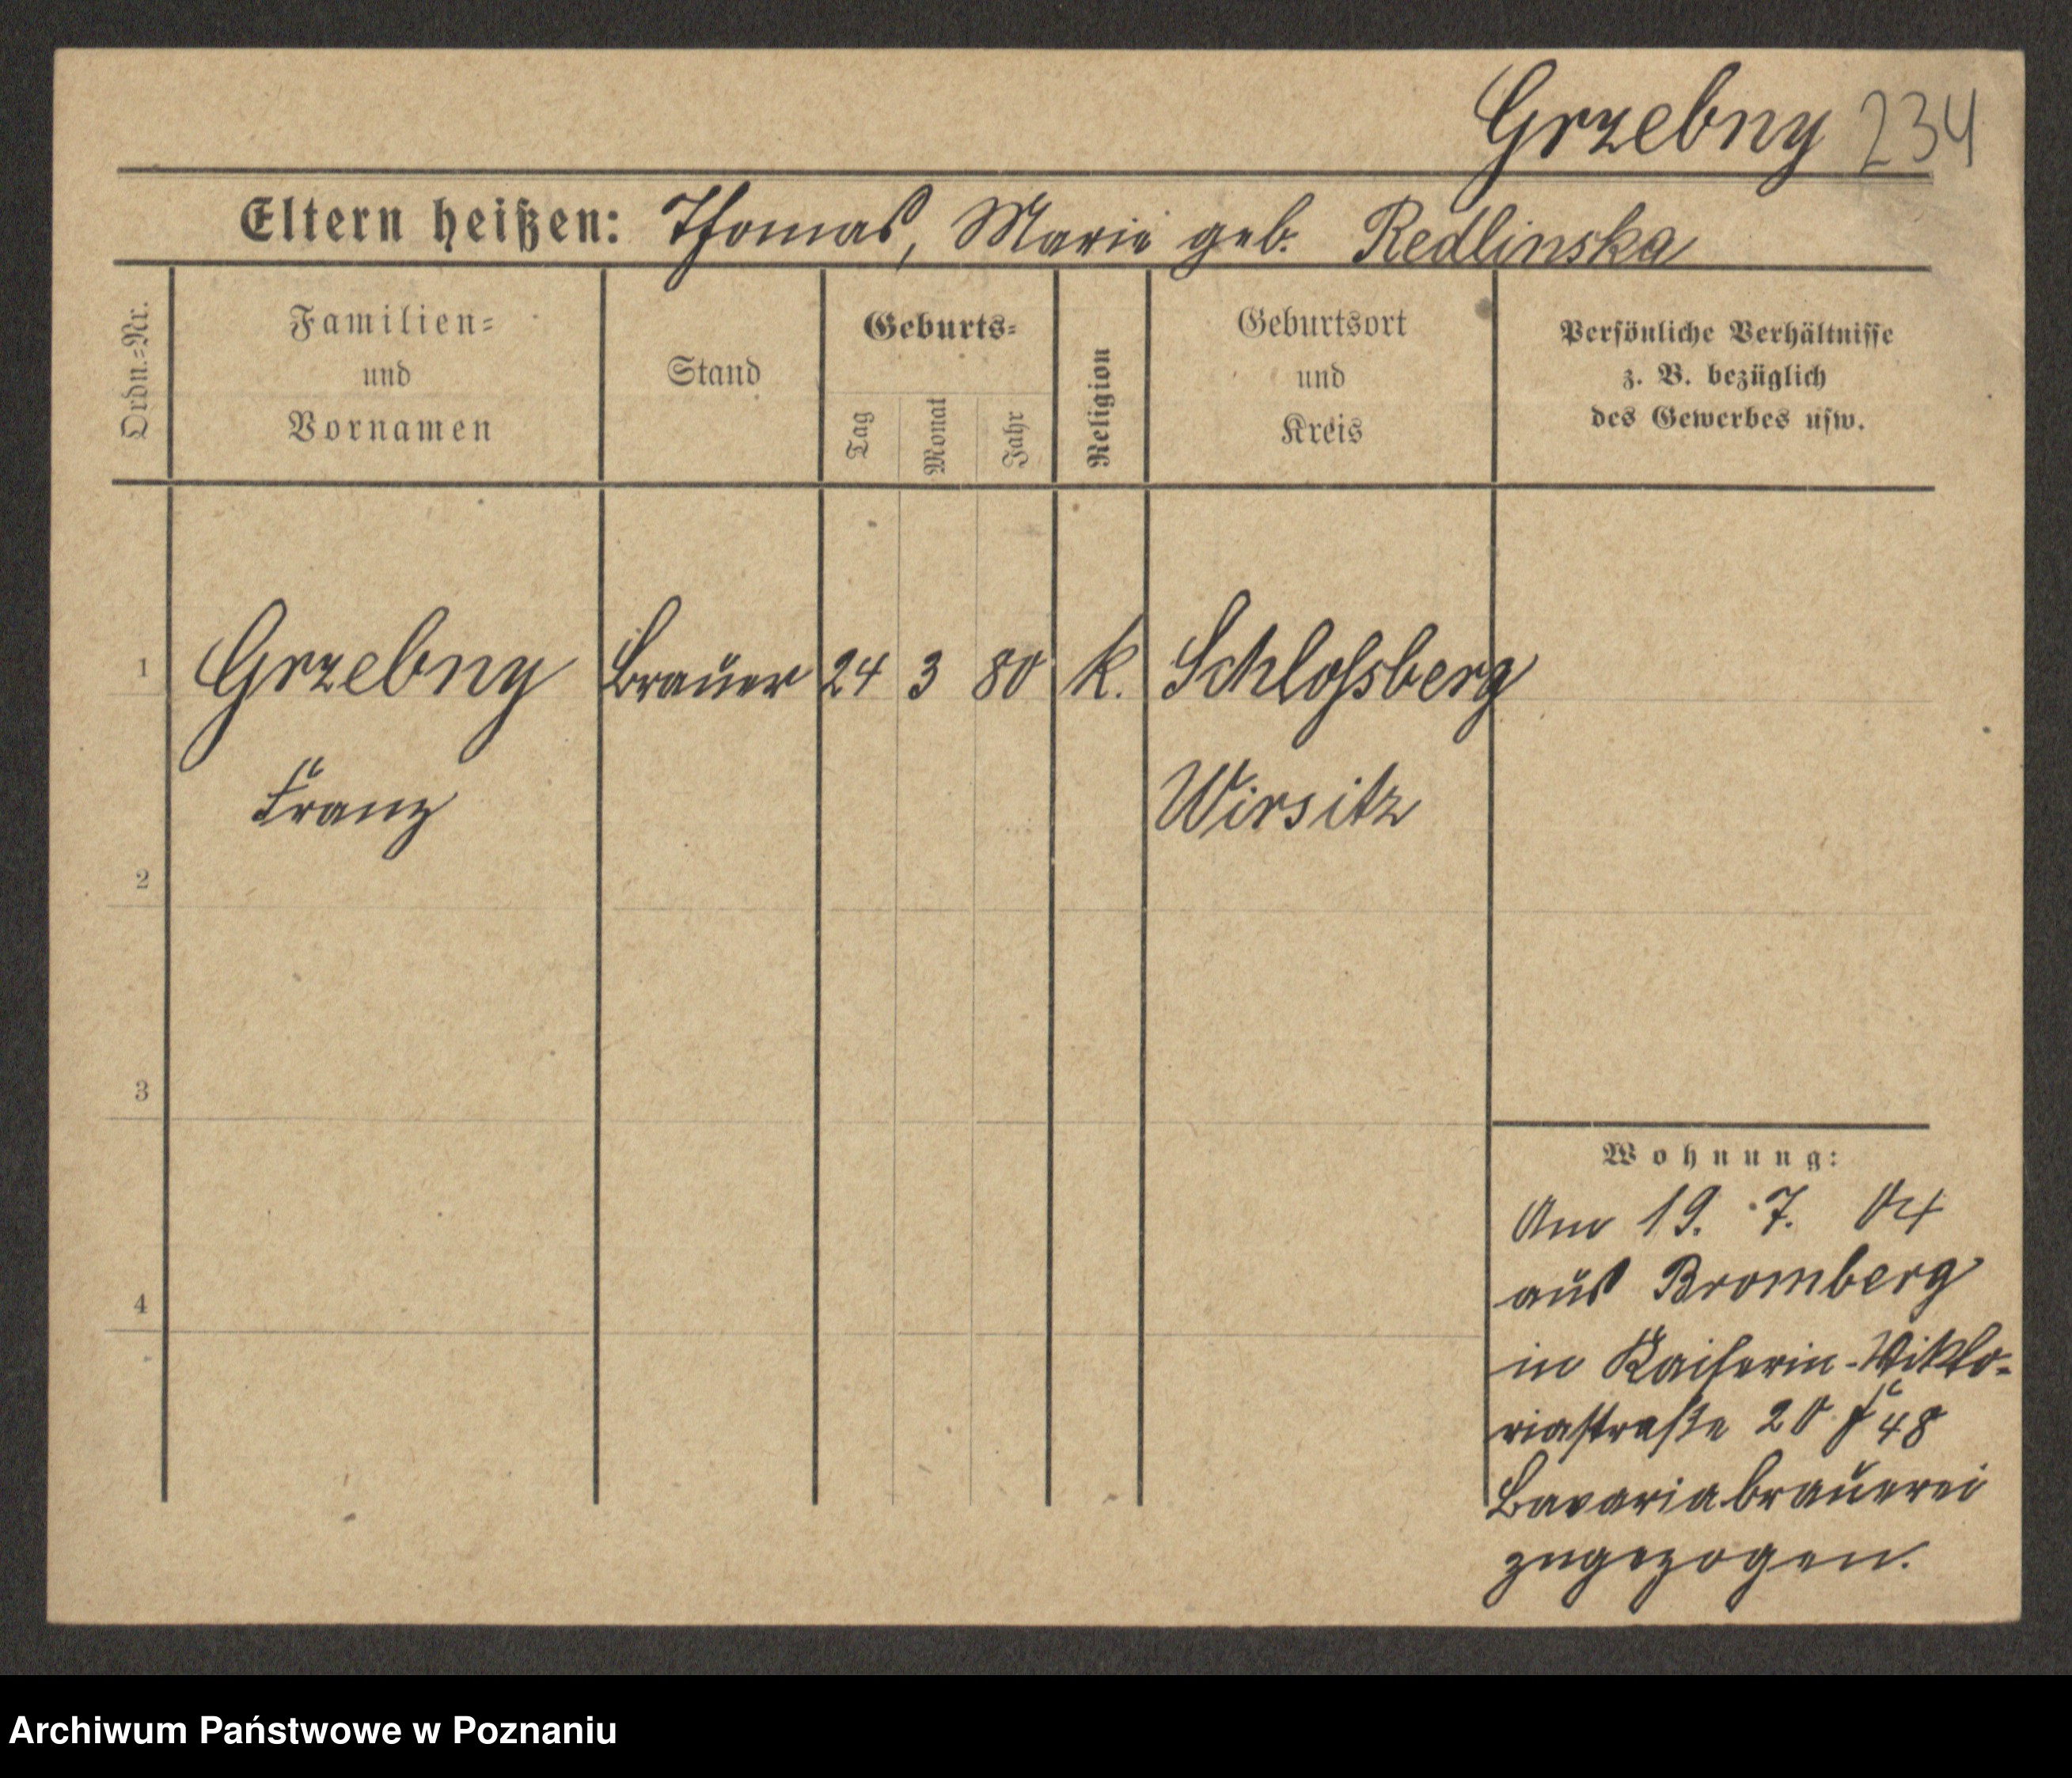 Grzebny 234
Eltern heißen: Thomas, Marie geb. Redlinska
Ordn.=Nr.
Familien=
und
Vornamen
Stand
Geburts=
Tag
Monat
Jahr
Religion
Geburtsort
und
Kreis
Persönliche Verhältnisse
z. B. bezüglich
des Gewerbes usw.
1 Grzebny Brauer 24 3 80 k. Schlossberg
Franz Wirsitz
2
3
4
Wohnung:
Am 19. 7. 04
aus Bromberg
in Kaiserin-Vikto-
riastraße 20 F 48
Bavariabrauerei
zugezogen.
Archiwum Państwowe w Poznaniu